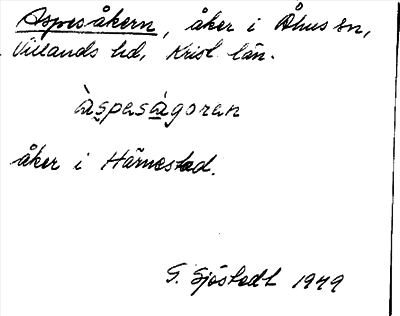 Aspesåkern, åker i Åhus sn,
Villands hd, Krist. län.
àspesàgoren
åker i Härnestad.
G. Sjöstedt 1949